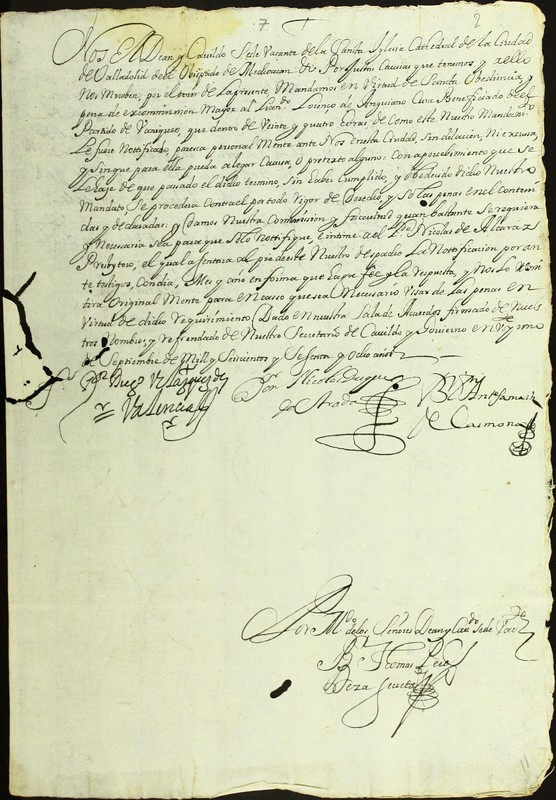 7 2
Nos El Dean y Cavildo Sede Vacante de la Santa Iglesia Cathedral de la Ciudad
de Valladolid de el Obispado de Mechoacan &c Por Justas Causas que tenemos y a ello
Nos Mueben, por el tenor de la presente, Mandamos en Virtud de Santa Obediencia y
pena de excomunion Mayor al Licen.do Lorenço de Anguiano Cura Beneficiado de el
Partido de que dentro de Veinte y quatro horas de Como este Nuestro Mandam.to
Le fuere Notificado paresca personal Mente ante Nos en esta Ciudad, Sin dilacion, Ni excusa,
y Sin que para ella pueda alegar Causa, O pretexto alguno: Con apercevimiento que Se
Le haze de que pasado el dicho termino, Sin haber Cumplido, y Obedecido dicho Nuestro
Mandato, Se procedera Contra el por todo Rigor de Derecho, y So las penas en el Conteni
das y declaradas; y Damos Nuestra Comission y facultad quan bastante Se requiera
y Necesaria sea para que Se lo Nottifique, e intime a el L.do Nicolas de Alcaraz
Presbytero, el qual asentara al pie de este Nuestro despacho La Nottificacion por an
te testigos, Con dia, Mes y año en forma que haga fee y la respuesta, y Nos lo remi
tira Original Mente para en Caso que sea Necesario Usar de Las penas en
Virtud de dicho requirimiento Dado en nuestra Sala de Acuerdos firmado de Nues
tros Nombres, y refrendado de Nuestro Secretario de Cavildo y Govierno en
de Septiembre de Mill y Seiscientos y Sesenta y Ocho años
Diego Velasquez de
Valencia
Don Nicolas
de
de Carmona
Por M.do de los Señores Dean y Cav.do Sede Vac.te
B.r Thomas
Secret.o